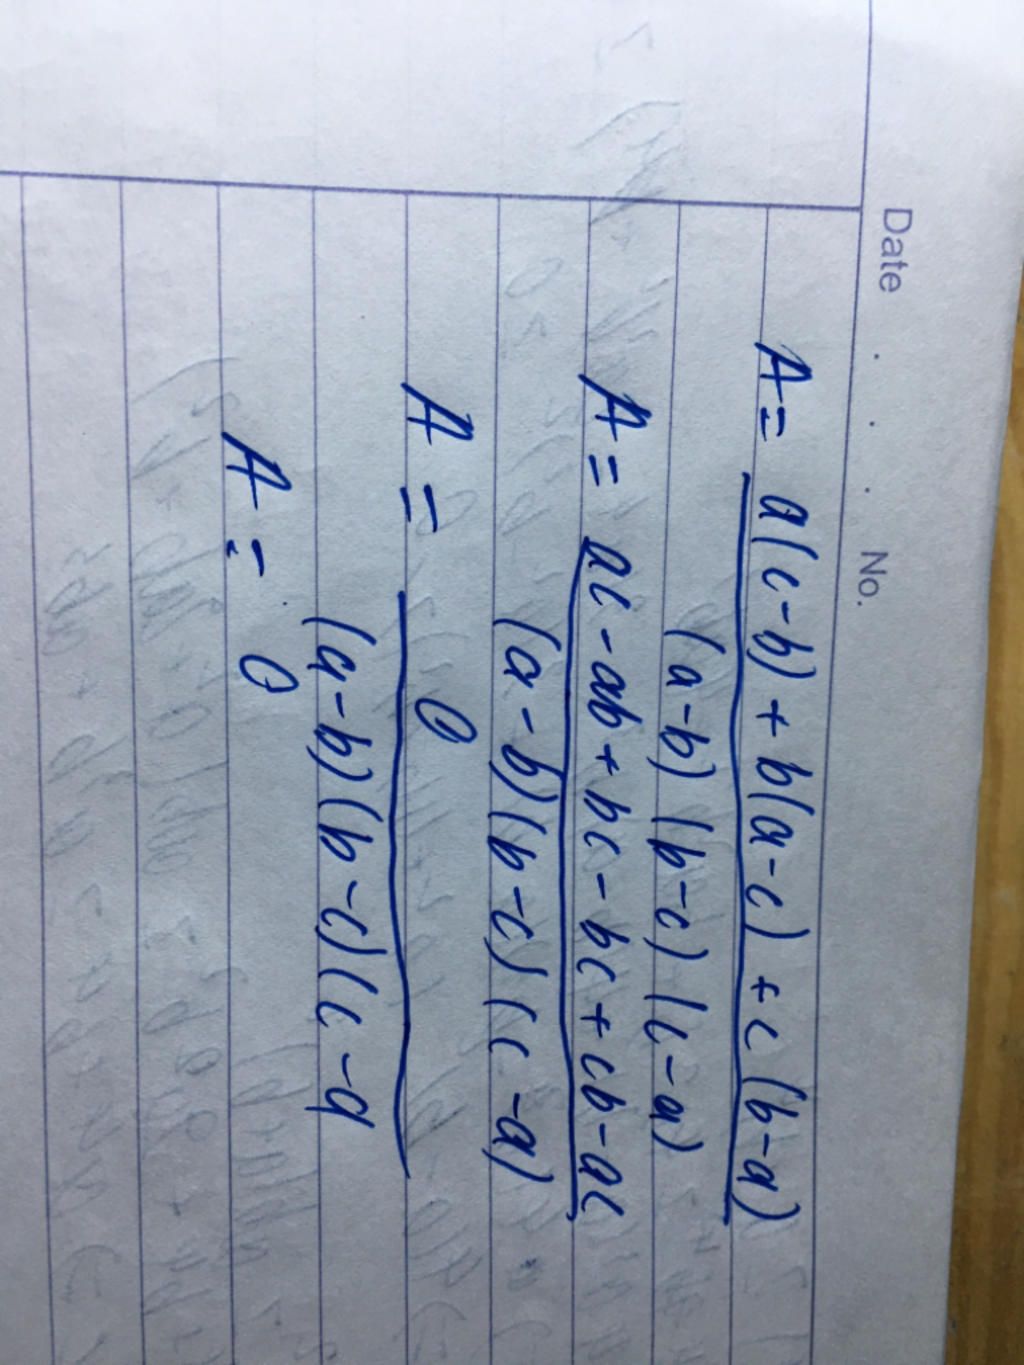 Date . . . No.
A = a(c-b) + b(a-c) + c(b-a)
(a-b)(b-c)(c-a)
A = ac - ab + bc - bc + cb - ac
(a-b)(b-c)(c-a)
A = 0
(a-b)(b-c)(c-a
A = 0